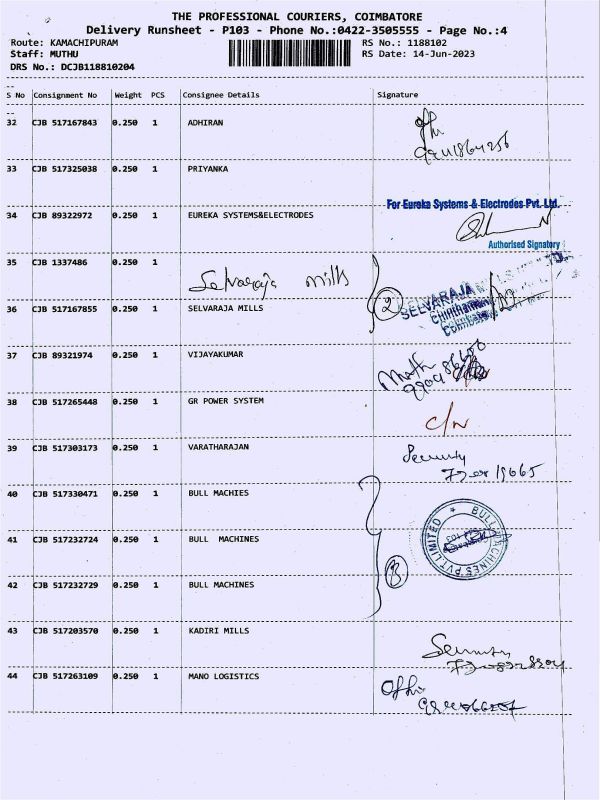 THE PROFESSIONAL COURIERS, COIMBATORE
Delivery Runsheet - P103 - Phone No.:0422-3505555 - Page No.:4
Route: KAMACHIPURAM RS No.: 1188102
Staff: MUTHU RS Date: 14-Jun-2023
DRS No.: DCJB118810204
S No Consignment No Weight PCS Consignee Details Signature
32 CJB 517167843 0.250 1 ADHIRAN
33 CJB 517325038 0.250 1 PRIYANKA
For Eureka Systems & Electrodes Pvt. Ltd.
34 CJB 89322972 0.250 1 EUREKA SYSTEMS&ELECTRODES
Authorised Signatory
35 CJB 1337486 0.250 1
Selvaraja mills
2 SELVARAJA
36 CJB 517167855 0.250 1 SELVARAJA MILLS
37 CJB 89321974 0.250 1 VIJAYAKUMAR
38 CJB 517265448 0.250 1 GR POWER SYSTEM
C/N
39 CJB 517303173 0.250 1 VARATHARAJAN
Security
40 CJB 517330471 0.250 1 BULL MACHIES
41 CJB 517232724 0.250 1 BULL MACHINES
BULL MACHINES PVT. LIMITED
3
42 CJB 517232729 0.250 1 BULL MACHINES
43 CJB 517203570 0.250 1 KADIRI MILLS
Security
44 CJB 517263109 0.250 1 MANO LOGISTICS